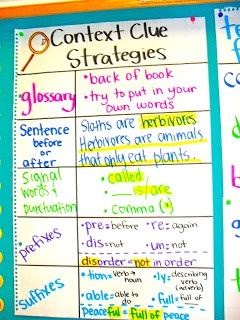 Context Clue
Strategies
glossary
• back of book
• try to put in your
own words
Sentence
before
or
after
Sloths are herbivores.
Herbivores are animals
that only eat plants.
Signal
words &
punctuation
• called
• is/are
• comma (,)
prefixes
• pre = before • re = again
• dis = not • un = not
disorder = not in order
suffixes
• tion = verb → noun
• ly = describing verb (adverb)
• able = able to do
• full = full of
peaceful = full of peace